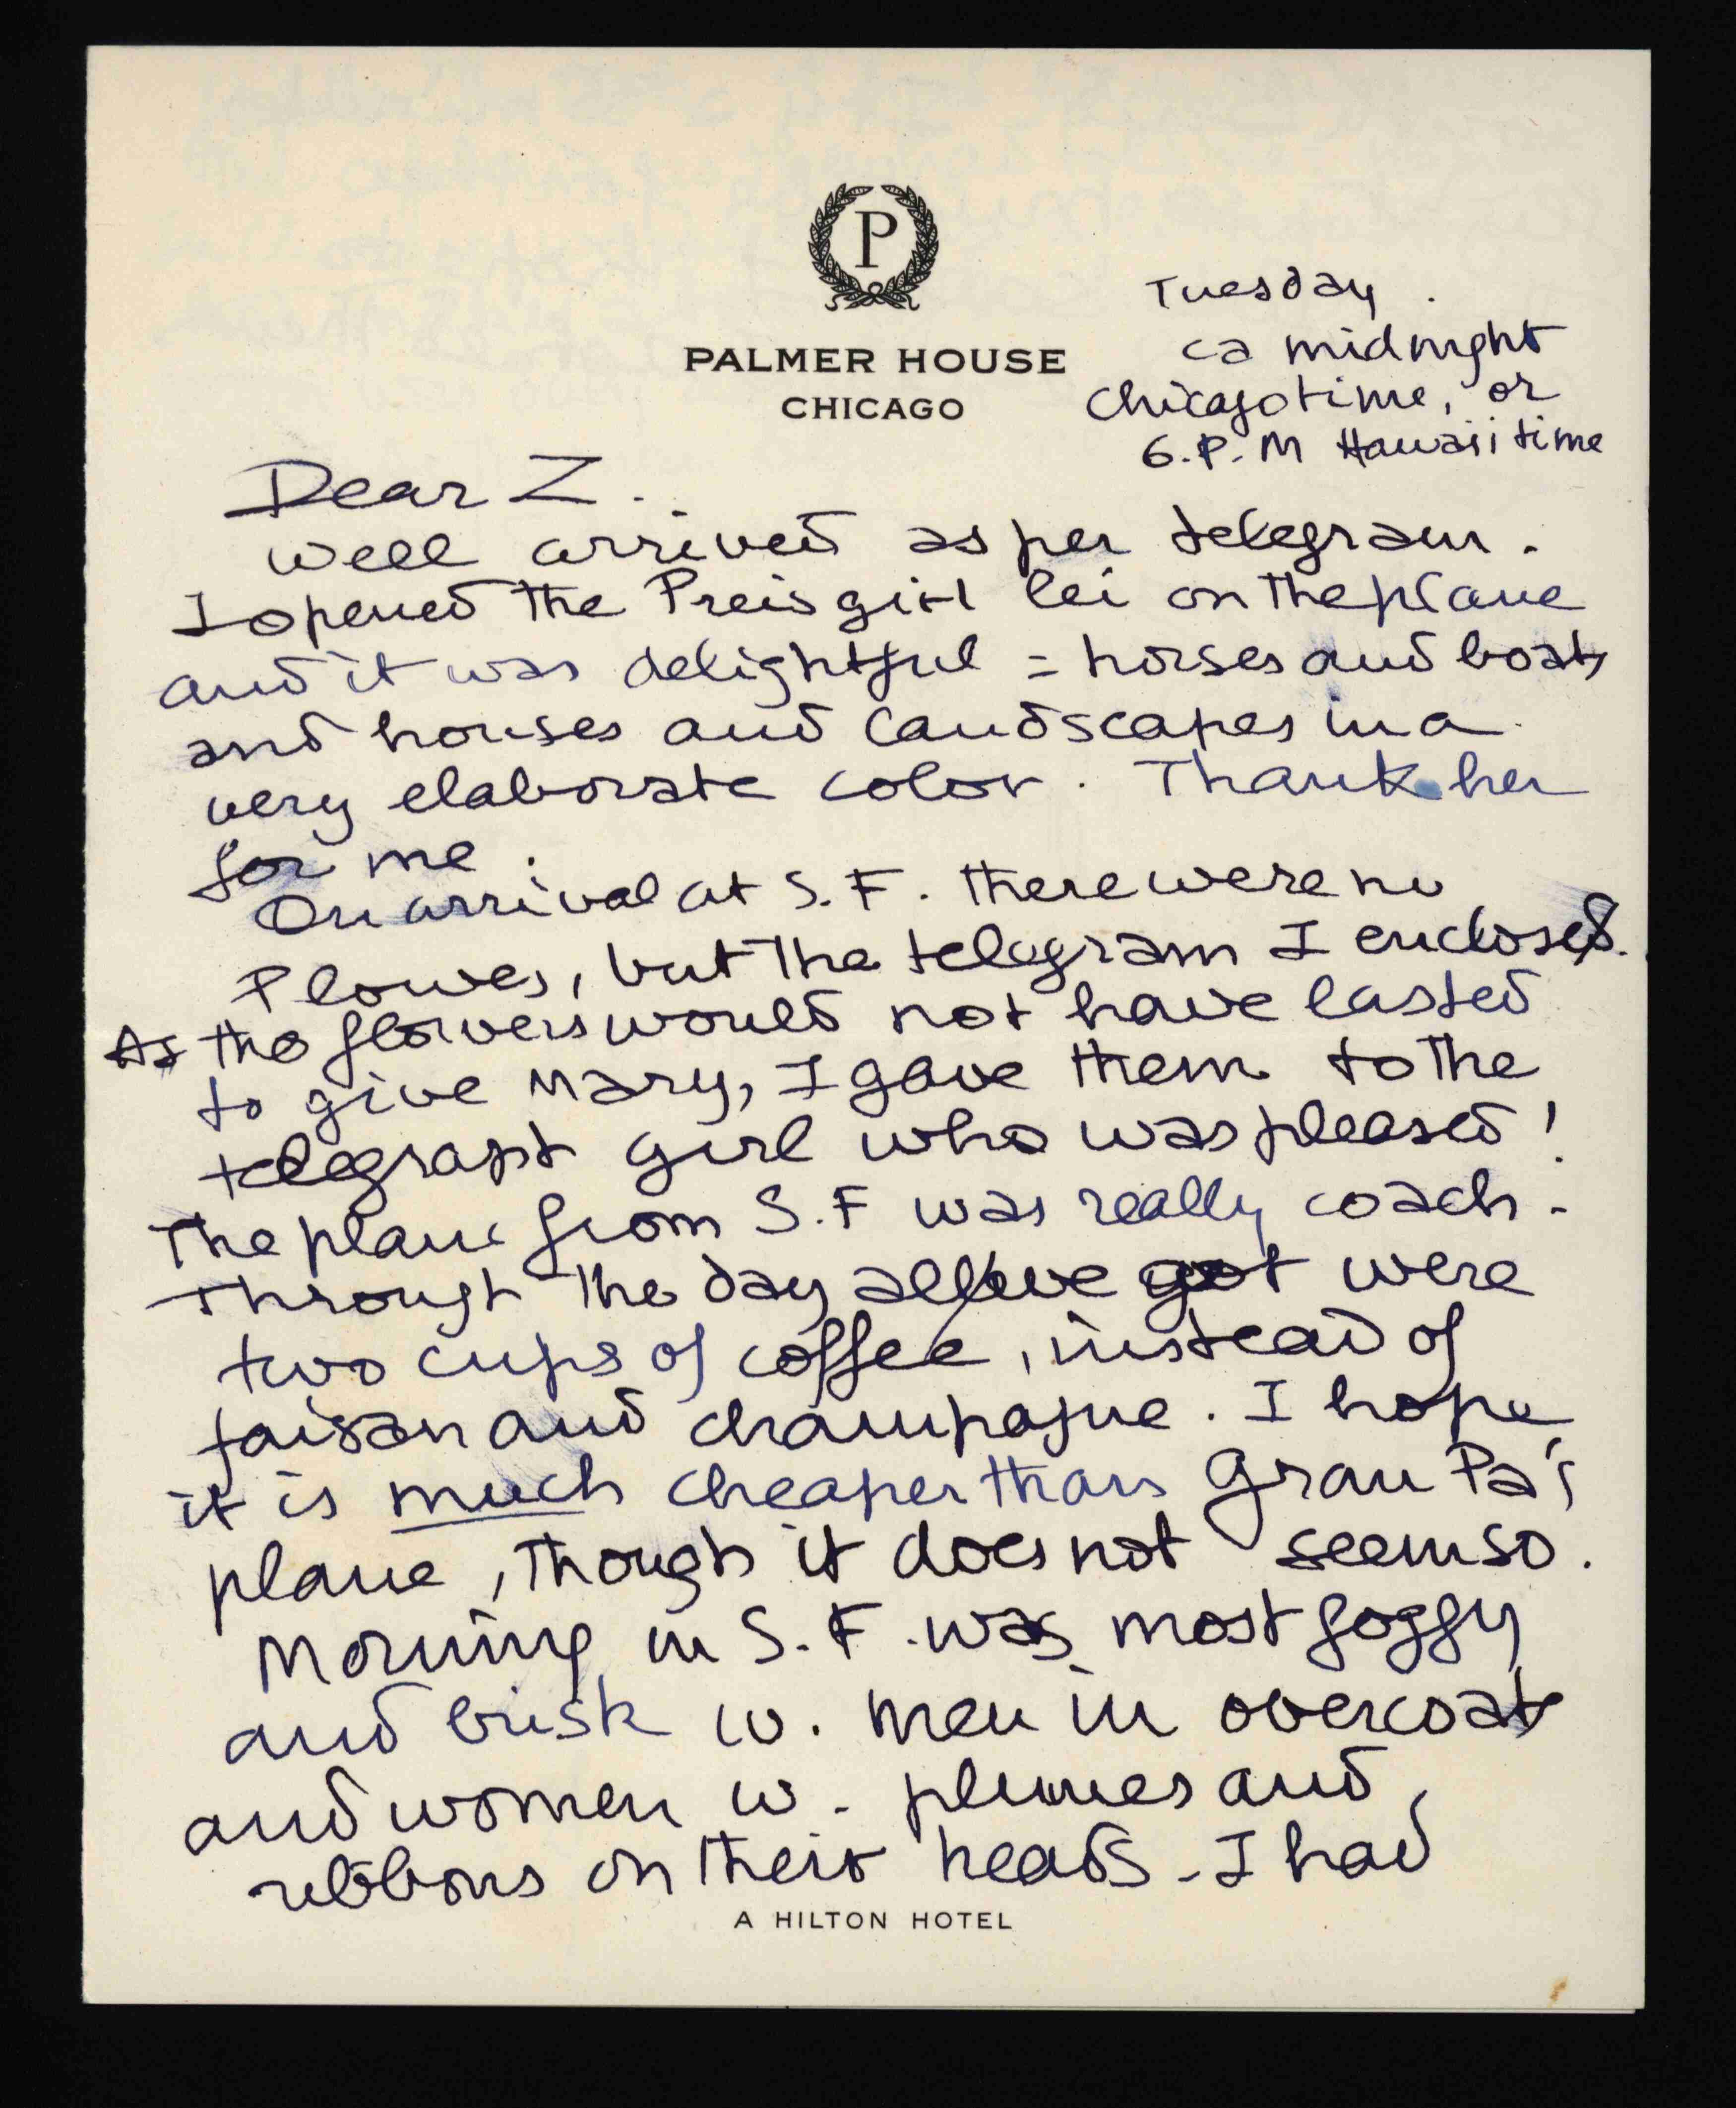 P
PALMER HOUSE
CHICAGO
Tuesday.
ca midnight
Chicago time, or
6. P. M Hawaii time
Dear Z.
Well arrived as per telegram.
I opened the Preis girl lei on the plane
and it was delightful = horses and boats
and houses and landscapes in a
very elaborate color. Thank her
for me.
On arrival at S.F. there were no
Plowes, but the telegram I enclosed.
As the flowers would not have lasted
to give Mary, I gave them to the
telegrapt girl who was pleased!
The plane from S.F was really coach.
Through the day all we got were
two cups of coffee, instead of
faisan and champagne. I hope
it is much cheaper than Gran Pa's
plane, though it does not seem so.
Morning in S.F. was most foggy
and brisk w. men in overcoats
and women w. plumes and
ribbons on their heads - I had
A HILTON HOTEL